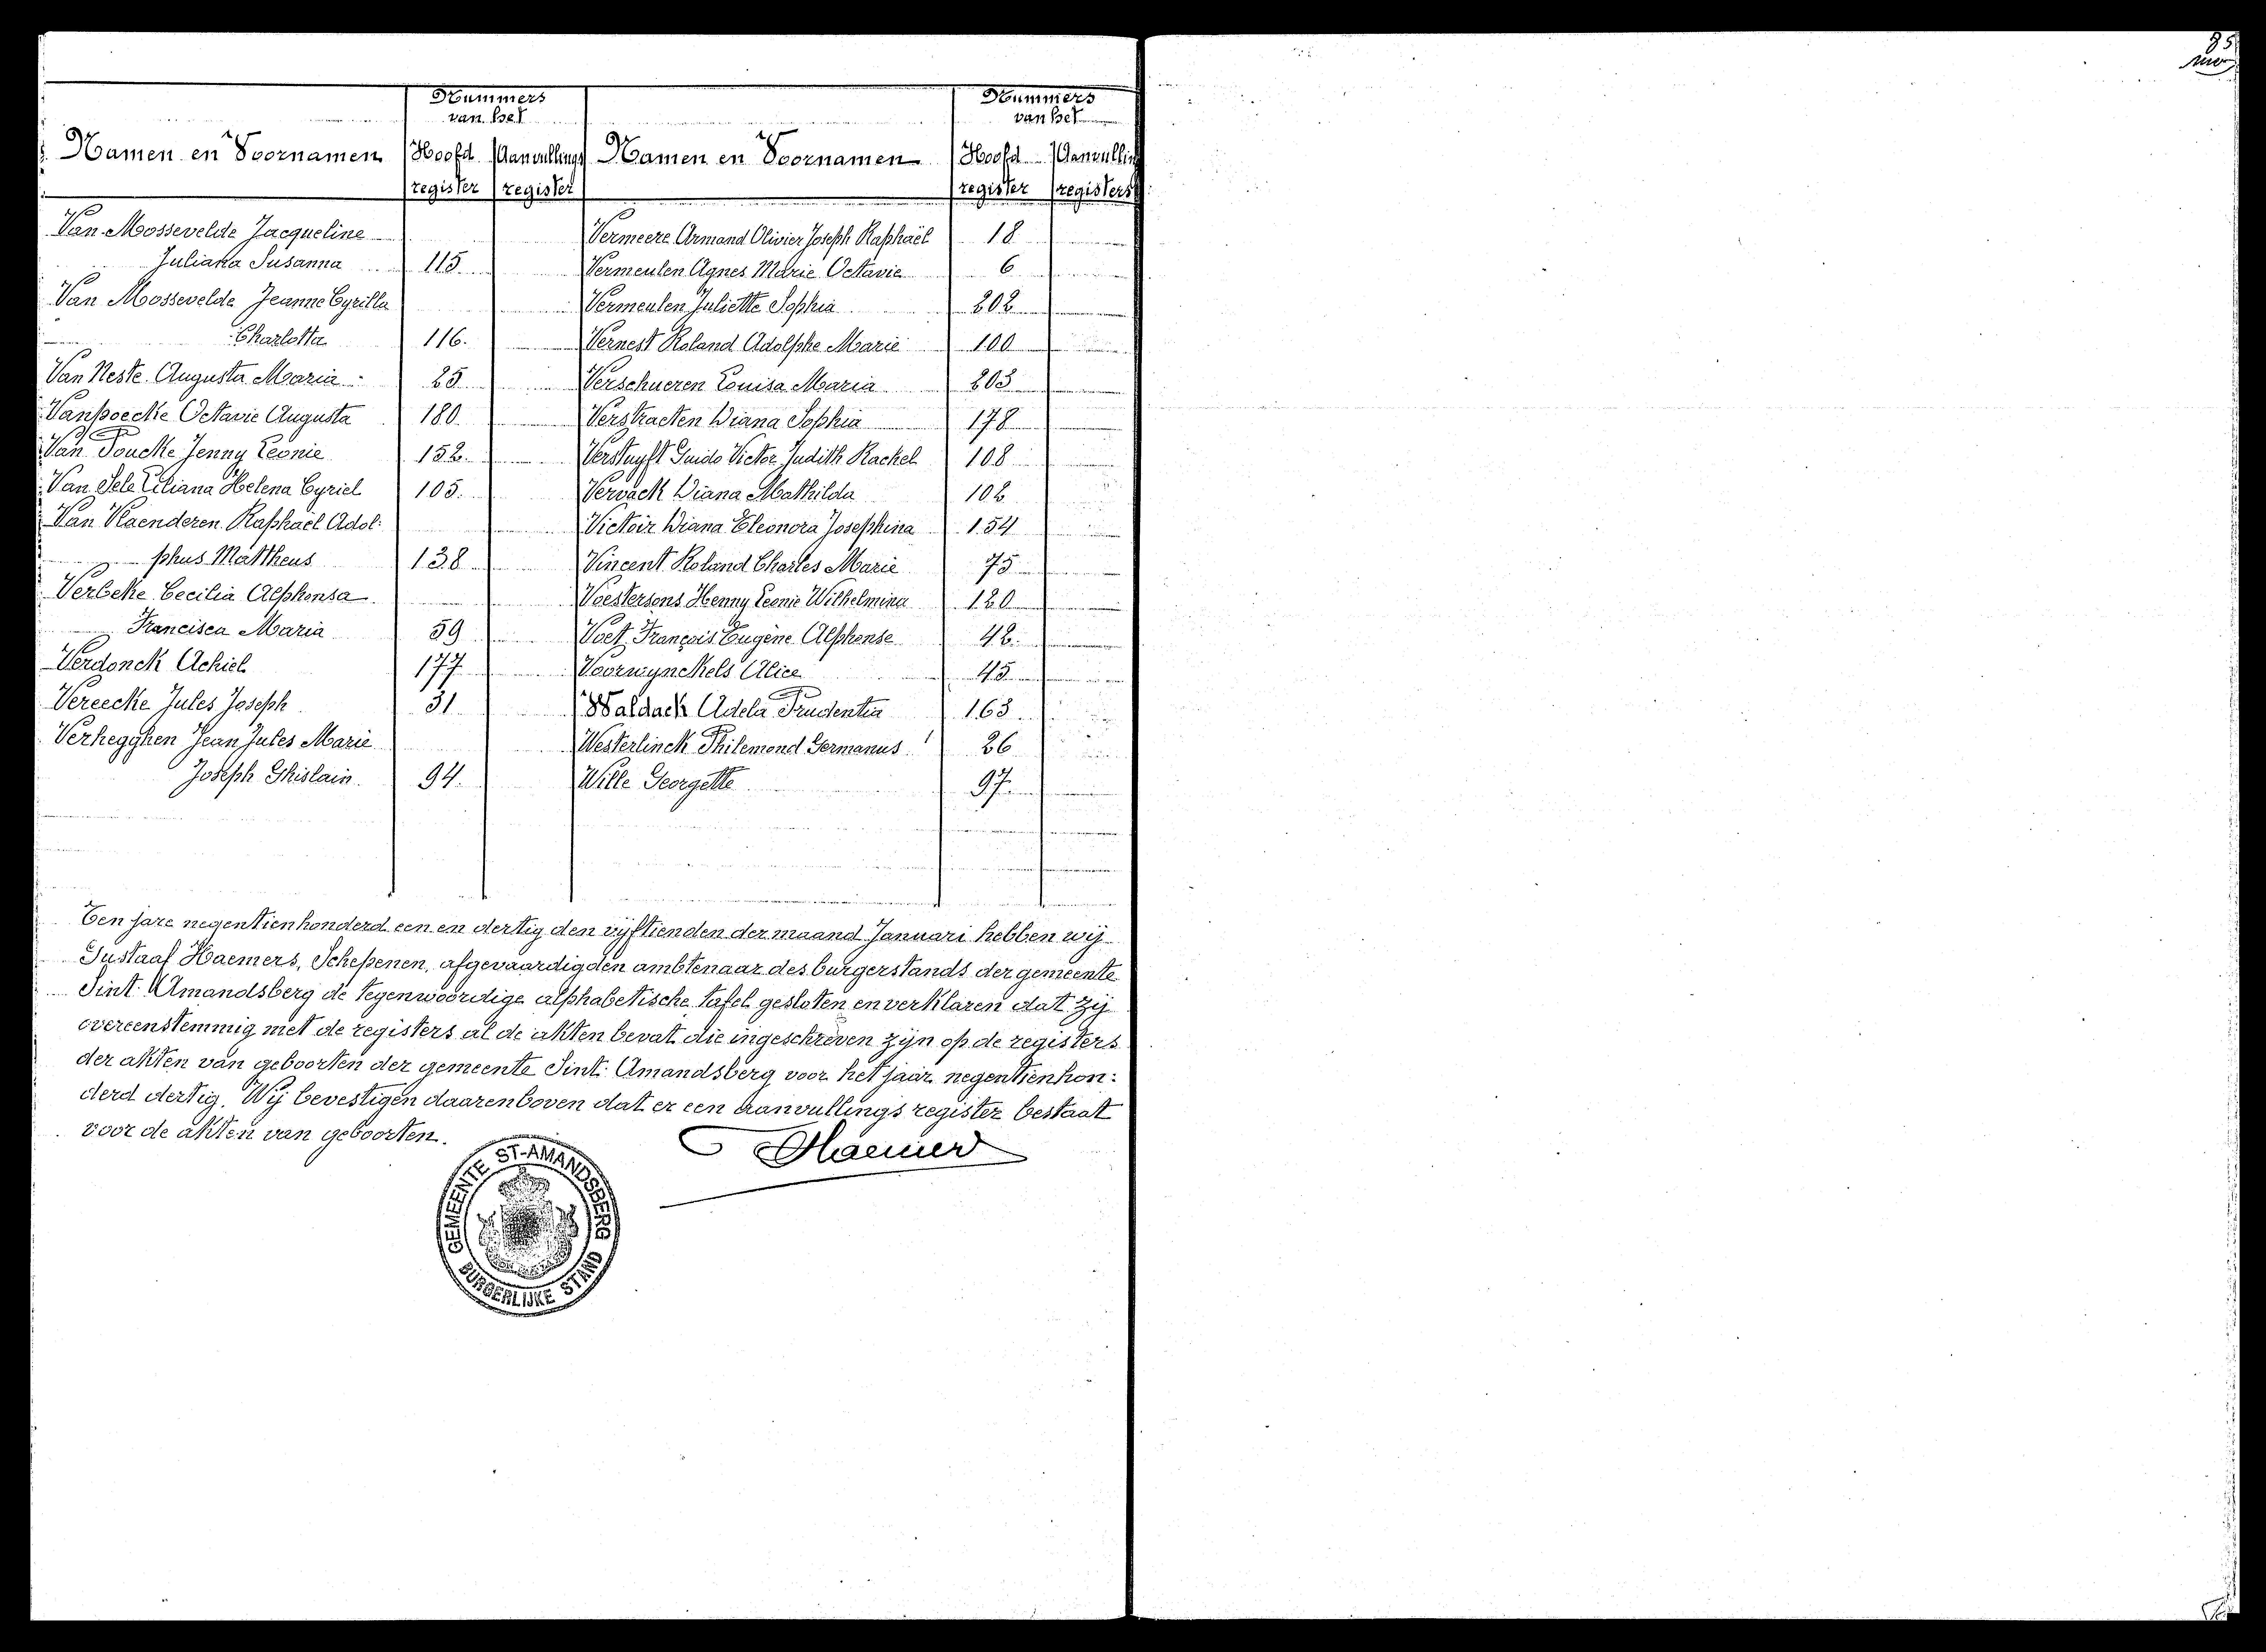 Nummers
van het
Namen en Voornamen Hoofd Aanvullings
register register
Van Mossevelde Jacqueline
Juliana Susanna 115
Van Mossevelde Jeanne Cyrilla
Charlotta 116
Van Neste Augusta Maria 25
Vanpoecke Octavie Augusta 180
Van Poucke Jenny Leonie 152
Van Sele Liliana Helena Cyriel 105
Van Vlaenderen Raphaël Adol:
phus Mattheus 138
Verbeke Cecilia Alphonsa
Francisca Maria 59
Verdonck Achiel 177
Vereecke Jules Joseph 31
Verhegghen Jean Jules Marie
Joseph Ghislain 94
Nummers
van het
Namen en Voornamen Hoofd Aanvullin
register registers
Vermeere Armand Olivier Joseph Raphaël 18
Vermeulen Agnes Marie Octavie 6
Vermeulen Juliette Sophia 202
Vernest Roland Adolphe Marie 100
Verschueren Louisa Maria 203
Verstraeten Diana Sophia 178
Verstuyft Guido Victor Judith Rachel 108
Vervack Diana Mathilda 102
Victoir Diana Eleonora Josephina 154
Vincent Roland Charles Marie 75
Voestersons Henny Leonie Wilhelmina 120
Voet François Eugène Alphonse 42
Voorwynckels Alice 45
Waldack Adela Prudentia 163
Westerlinck Philemond Germanus 26
Wille Georgette 97
Ten jare negentienhonderd een en dertig den vijftienden der maand Januari hebben wij
Gustaaf Haemers, Schepenen, afgevaardigden ambtenaar des burgerstands der gemeente
Sint: Amandsberg de tegenwoordige alphabetische tafel gesloten en verklaren dat zij
overeenstemmig met de registers al de akten bevat die ingeschreven zijn op de registers
der akten van geboorten der gemeente Sint: Amandsberg voor het jaar negentienhon:
derd dertig. Wij bevestigen daarenboven dat er een aanvullings register bestaat
voor de akten van geboorten.
GHaemers
GEMEENTE ST-AMANDSBERG
BURGERLIJKE STAND
85